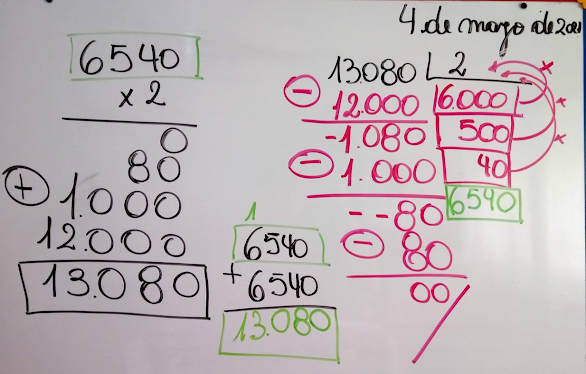 4.de mayo de 2021
6540
x 2
0
80
+ 1.000
12.000
13.080
1
6540
+ 6540
13.080
13.080 2
- 12.000 6.000
-1.080 500
- 1.000 40
--80 6540
- 80
00